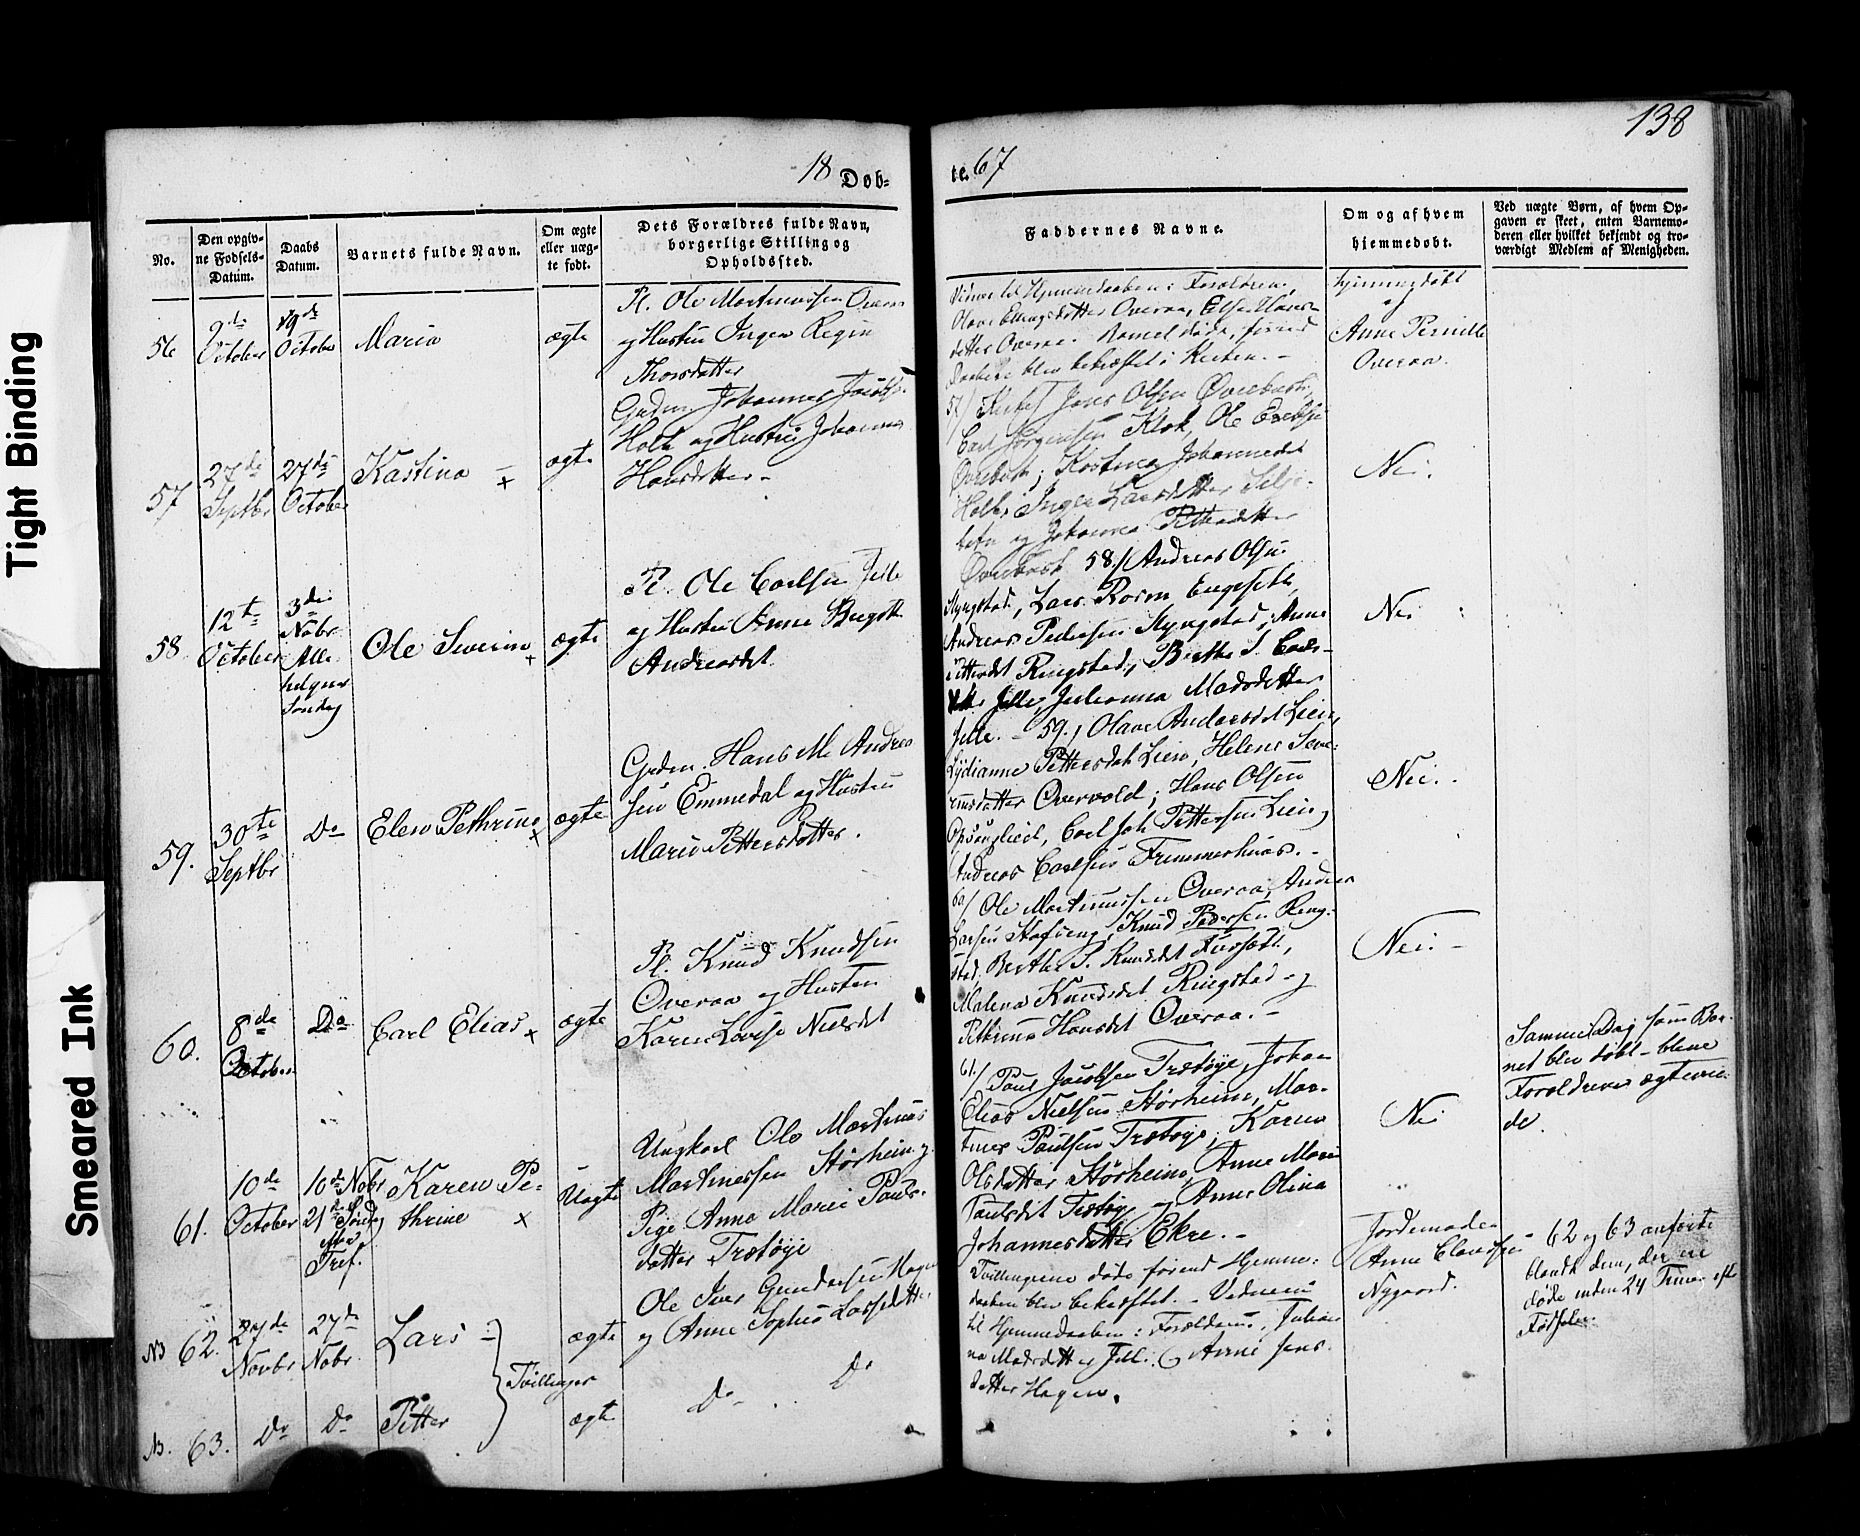 Tight Binding
Smeared Ink
138
18 Døb=
te. 67
No.
Den opgiv-
ne Fødsels-
Datum.
Daabs
Datum.
Barnets fulde Navn.
Om ægte
eller uæg-
te født.
Dets Forældres fulde Navn,
borgerlige Stilling og
Opholdssted.
Faddernes Navne.
Om og af hvem
hjemmedøbt.
Ved uægte Børn, af hvem Op-
gaven er skeet, enten Barnemo-
deren eller hvilket bekjendt og tro-
værdigt Medlem af Menigheden.
56
October
19de
October
Maria
ægte
Pl. Ole Martinussen Overaa
og Hustru Inger Regin
Thorsdatter
Vidner til Hjemmedaaben: Forældrene,
Overaa, Else Hans-
datter Overaa. Barnet døde, førend
Daaben blev bekræftet i Kirken. -
hjemmedøbt
af
Anne Pernille
Overaa.
57
27de
Septbr
27de
October
Kastina +
ægte
Grdm. Johannes
Holt og Hustru Johanna
Hansdatter -
57/ Jens Olsen
Carl Jørgensen Klok, Ole
Johannesdt
Inger Larsdatter
og Johanna Pettersdatter
Nei.
58
12te
October
3die
Nobr
Alle
helgens
Søndag
Ole Severin +
ægte
Pl. Ole Carlsen Jelle
og Hustru Anne Birgitte
Andreasdt.
58/ Andreas Olsen
Myngstad, Lars
Andreas Pedersen Myngstad, Anne
Pettersdt Ringstad, Birthe S. Carls-
dtr Jelle, Julianna Madsdatter
Jelle. -
Nei
59.
30te
Septbr
Do
Elen Pethrine +
ægte
Grdm. Hans M. Andrea
sen Emmedal og Hustru
Marie Pettersdatter.
59./ Olave Andersdt Lien,
Lydianne Pettersdt Lien, Helene Seve-
rinsdatter Overvold; Hans Olsen
Opsanglied, Carl Joh. Pettersen Lien,
Andreas Carlsen Fremmerhuus. -
Nei.
60.
8de
October
Do
Carl Elias +
ægte
Pl. Knud Knudsen
Overaa og Hustru
Karen Lovise Nielsdt
60/ Ole Martinussen Overaa, Andreas
Larsen Hafseng, Knud Pedersen Ring-
stad, Berthe S. Knudsdt
Malene Knudsdt Ringstad og
Pethrine Hansdt Overaa. -
Nei. -
61.
10de
October
10de Nobr
21de Søndag
efter
Tref.
Karen Pe-
thrine +
Uægte
Ungkarl Ole Martinus
Martinussen Størheim og
Pige Anne Marie Pouls-
datter Trætøye
61./ Poul Jacobsen Trætøye, Johan
Elias Nielsen Størheim, Mar-
tinus Poulsen Trætøye, Karen
Olsdatter Størheim, Anne Marie
Poulsdt Trætøye og Anne Olina
Johannesdatter Ekre. -
Nei
Samme Dag som Bar-
net blev døbt - bleve
Forældrene ægtevie-
de.
NB 62.
27de
Novbr
27de
Nobr.
Lars -
Tvillinger
ægte
Ole Iver Gundersen Hagen
og Anne Sophie Larsdatter
Tvillingerne døde førend Hjemme-
daaben blev bekræftet. - Vidnerne
til Hjemmedaaben: Forældrene, Julian-
na Madsdatter Jelle og Anne Jens-
datter Hagen.
Jordemoder
Anne
Nygaard.
62 og 63 anførte
blandt dem, der ere
døde inden 24 Timer efter
Fødselen.
NB. 63.
Do
Do
Petter
ægte
Do Do